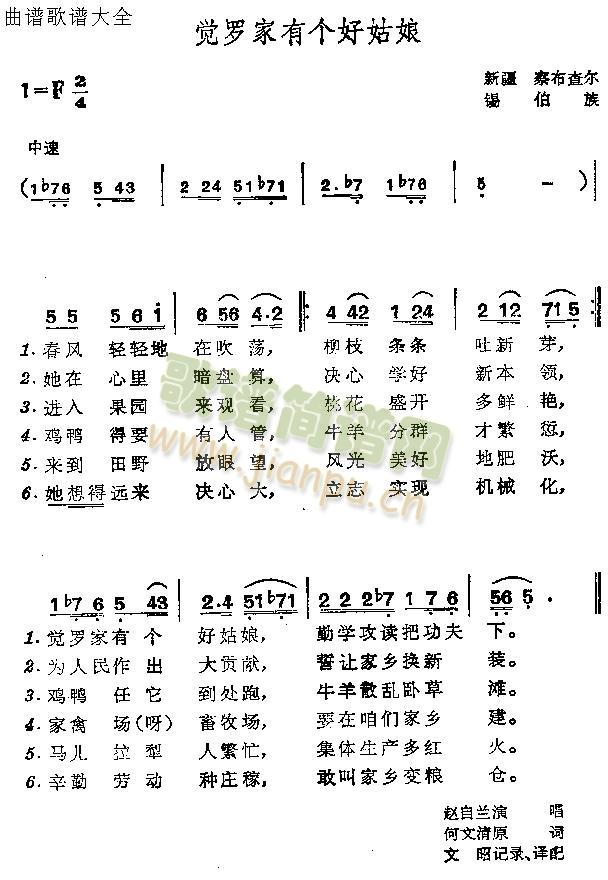 曲谱歌谱大全
觉罗家有个好姑娘
1=F 2/4
新疆 察布查尔
锡伯族
中速
(1♭76 5 43 | 2 24 51♭71 | 2.♭7 1♭76 | 5 - )
5 5 5 6 1 | 6 56 4·2 |: 4 42 1 24 | 2 12 71 5 :|
1.春风 轻轻地 在吹荡, 柳枝 条条 吐新芽,
2.她在 心里 暗盘算, 决心 学好 新本领,
3.进入 果园 来观看, 桃花 盛开 多鲜艳,
4.鸡鸭 得要 有人管, 牛羊 分群 才繁愆,
5.来到 田野 放眼望, 风光 美好 地肥沃,
6.她想得远来 决心大, 立志 实现 机械化,
歌谱简谱网
www.jianpu.cn
1♭7 6 5 43 | 2·4 51♭71 | 2 2 2♭7 1 7 6 | 56 5. :|
1.觉罗家有个 好姑娘, 勤学攻读把功夫 下。
2.为人民作出 大贡献, 誓让家乡换新 装。
3.鸡鸭 任它 到处跑, 牛羊散乱卧草 滩。
4.家禽 场(呀) 畜牧场, 要在咱们家乡 建。
5.马儿 拉犁 人繁忙, 集体生产多红 火。
6.辛勤 劳动 种庄稼, 敢叫家乡变粮 仓。
赵自兰演唱
何文清原词
文昭记录、译配